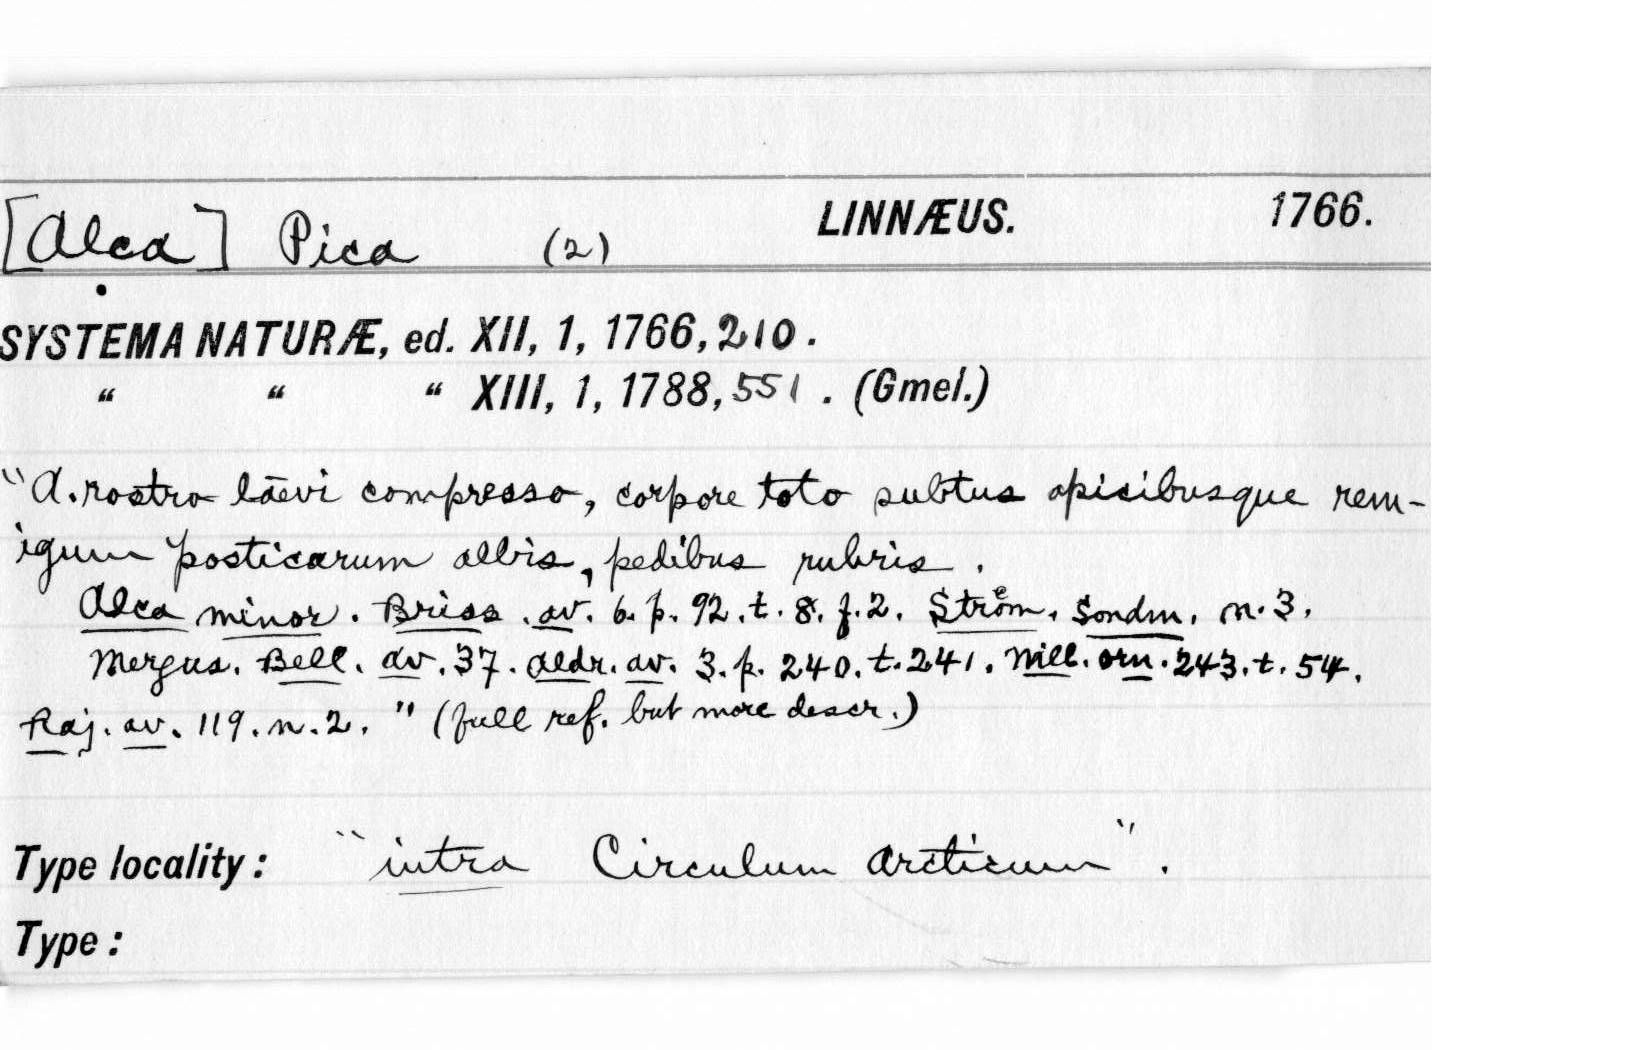 [Alca] Pica (2) LINNÆUS. 1766.
SYSTEMA NATURÆ, ed. XII, 1, 1766, 210.
“ “ “ XIII, 1, 1788, 551. (Gmel.)
"A. rostro lævi compresso, corpore toto subtus apicibusque rem-
igum posticarum albis, pedibus rubris.
Alca minor. Briss. av. 6. p. 92. t. 8. f. 2. Ström. Sondm. n. 3.
Mergus. Bell. av. 37. Aldr. av. 3. p. 240. t. 241. Will. orn. 243. t. 54.
Raj. av. 119. n. 2." (full ref. but more descr.)
Type locality: "intra Circulum arcticum".
Type: